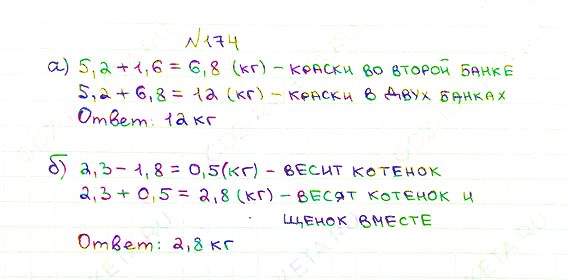 №174
а) 5,2 + 1,6 = 6,8 (кг) – КРАСКИ ВО ВТОРОЙ БАНКЕ
5,2 + 6,8 = 12 (кг) – КРАСКИ В ДВУХ БАНКАХ
Ответ: 12 кг
б) 2,3 – 1,8 = 0,5(кг) – ВЕСИТ КОТЕНОК
2,3 + 0,5 = 2,8 (кг) – ВЕСЯТ КОТЕНОК И
ЩЕНОК ВМЕСТЕ
Ответ: 2,8 кг